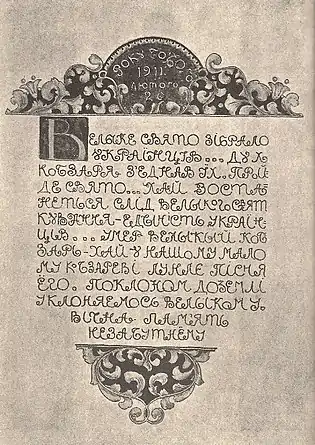 РОКУ БОЖОГО
1911
ЛЮТОГО
26
ВЕЛЫКЕ СВЯТО ЗІБРАЛО
УКРАЇНЦІВ... ДУХ
КОБЗАРЯ З'ЕДНАВ ЇХ. ПРИЙ
ДЕ СВЯТО... ХАЙ ЗОСТА
НЕТЬСЯ СЛІД ВЕЛЫКОГО СВЯТ
КУВАННЯ - ЕДНІСТЬ УКРАЇН
ЦІВ... УМЕР ВЕЛЫКЫЙ КОБ
ЗАРЬ - ХАЙ У НАШОМУ МАЛО
МУ КОБЗАРЕВІ ЛУНАЕ ПІСНЯ
ЙОГО. ПОКЛОНОМ ДОЗЕМЛІ
УКЛОНЯЕМОСЬ ВЕЛЫКОМУ.
ВІЧНА ПАМ'ЯТЬ
НЕЗАБУТНЕМУ